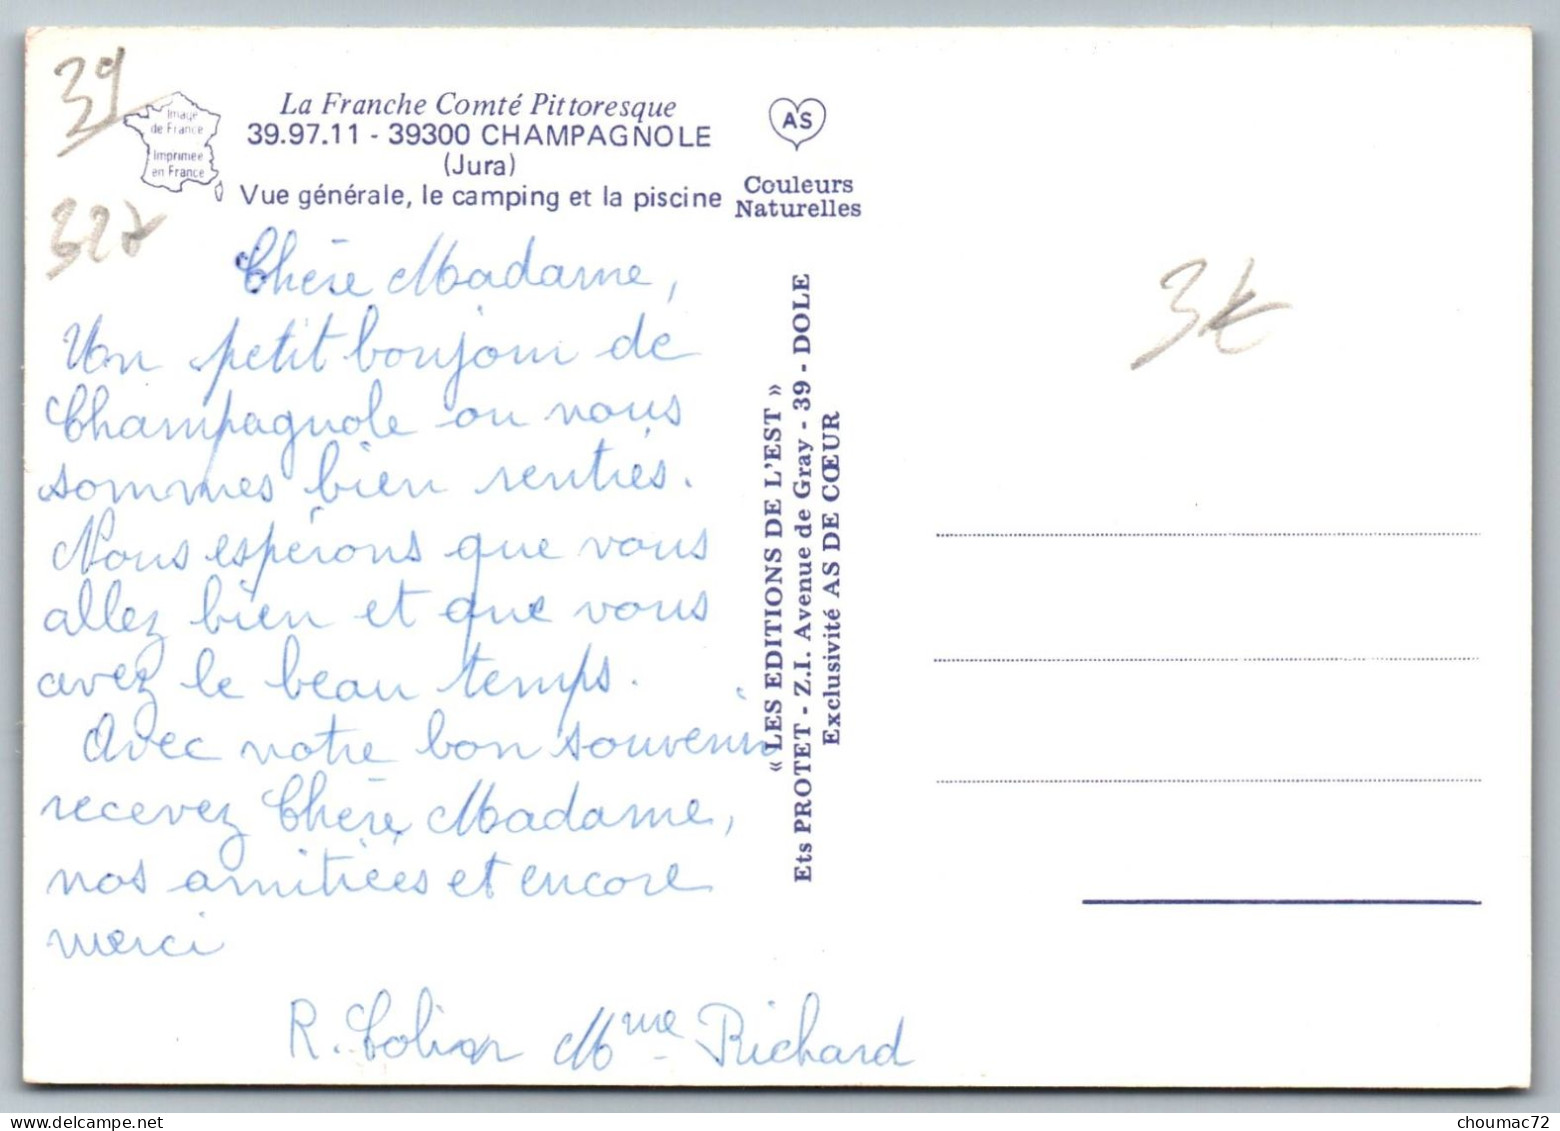 39
Image
de France
Imprimée
en France
La Franche Comté Pittoresque
39.97.11 - 39300 CHAMPAGNOLE
(Jura)
Vue générale, le camping et la piscine
AS
Couleurs
Naturelles
Chère Madame,
Un petit bonjour de
Champagnole ou nous
sommes bien rentrés.
Nous espérons que vous
allez bien et que vous
avez le beau temps.
Avec notre bon souvenir
recevez Chère Madame,
nos amitiées et encore
merci
R. Mme Richard
« LES EDITIONS DE L'EST »
Ets PROTET - Z.I. Avenue de Gray - 39 - DOLE
Exclusivité AS DE CŒUR
3€
choumac72